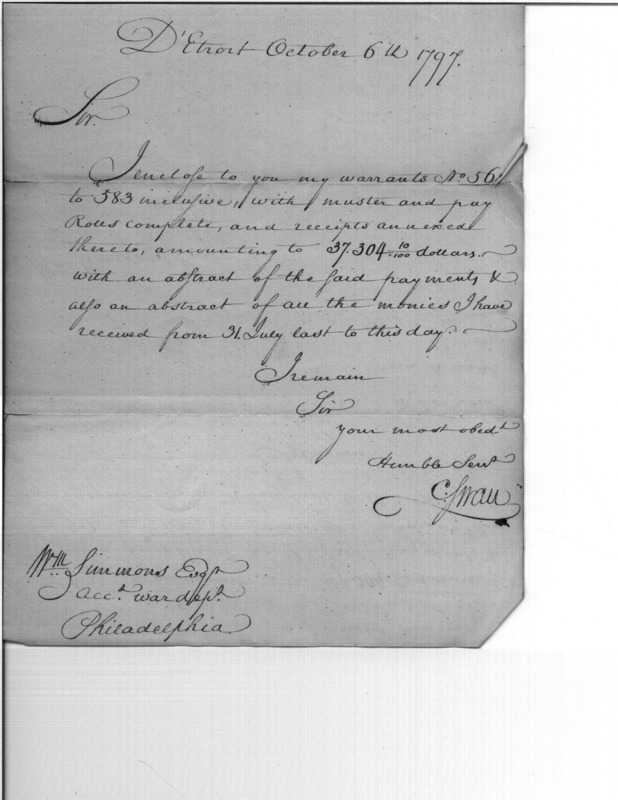 D'Etroit October 6th 1797.
Sir.
I enclose to you my warrants No 56
to 583 inclusive, with muster and pay
Rolls complete, and receipts annexed
thereto, amounting to 37.304 10/100 dollars.
with an abstract of the said payments &
also an abstract of all the monies I have
received from 31. July last to this day.
I remain
Sir
your most obedt
Humble Servt
C. Swan
Wm Simmons Esqr
Acct. war dept.
Philadelphia